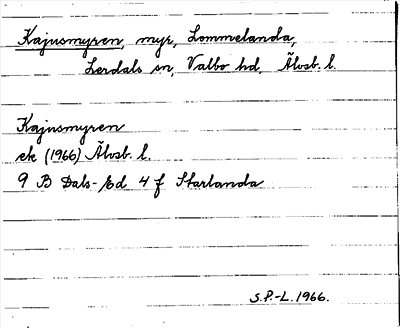 Kajusmyren, myr, Lommelanda,
Lerdals sn, Valbo hd, Älvsb. l.
Kajusmyren
ek (1966) Älvsb. l.
9 B Dals-Ed 4 f Starlanda
S.P.-L. 1966.